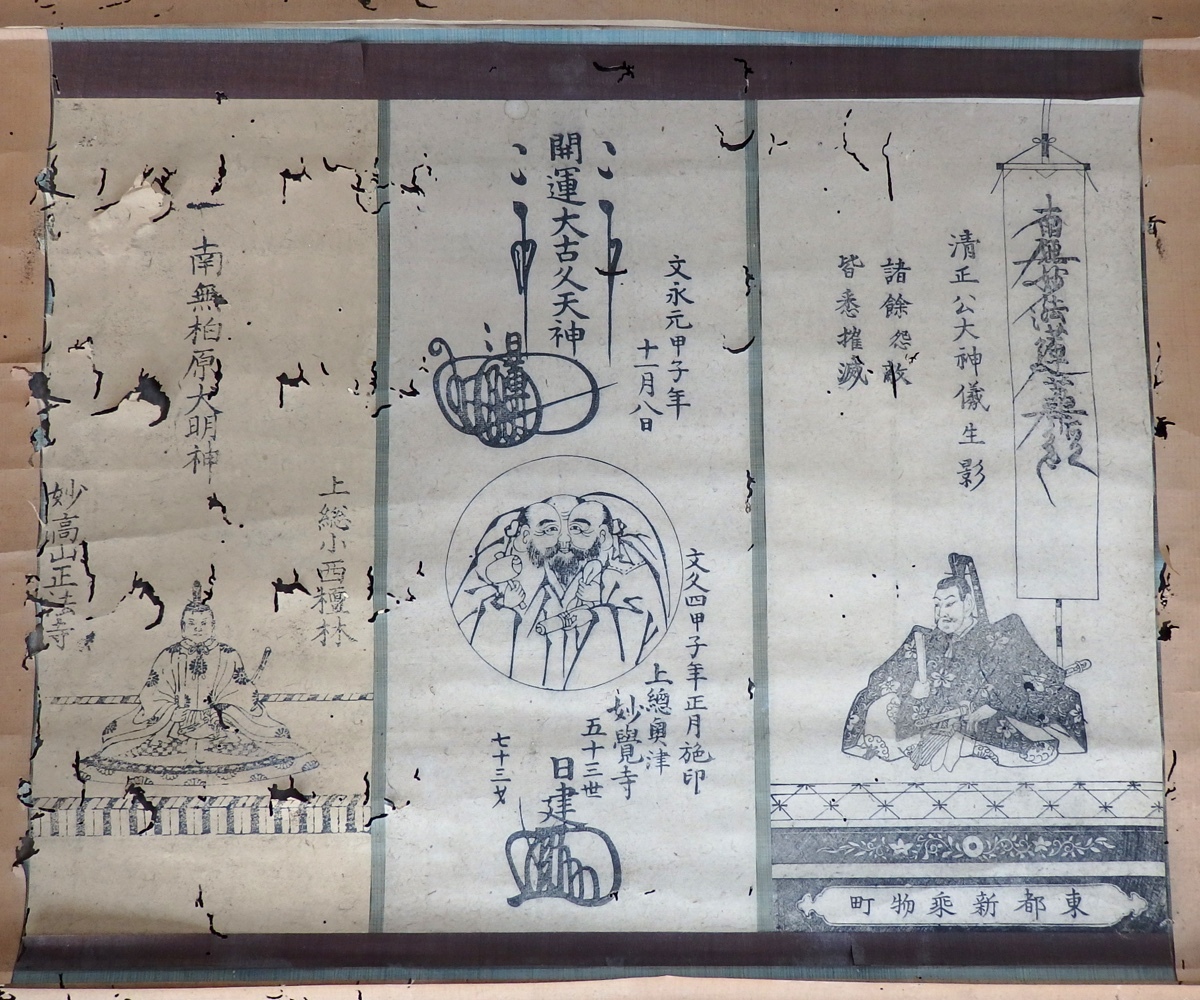 南無妙法蓮華經
清正公大神儀生影
諸餘怨敵
皆悉摧滅
東都新乘物町
文永元甲子年
十一月八日
開運大古久天神
日蓮
文久四甲子年正月施印
上總奧津
妙覺寺
五十三世
日建
七十三才
南無柏原大明神
上総小西檀林
妙高山正法寺